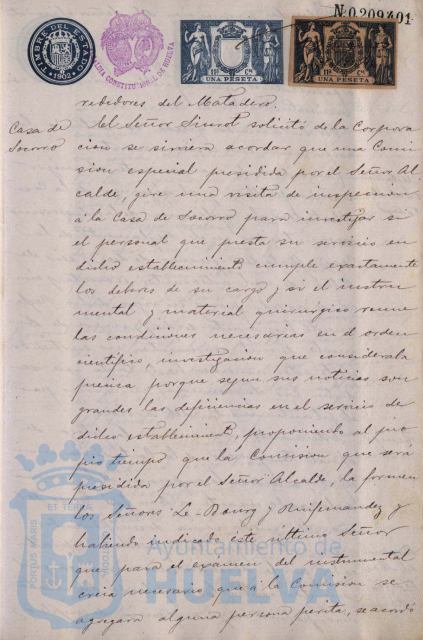 Nº 0,209,301
TIMBRE DEL ESTADO
1902
ALCALDIA CONSTITUCIONAL DE HUELVA
11ª Cª
UNA PESETA
11ª Cª
UNA PESETA
rebedores del Matadero.
Casa de Socorro
El Señor Siurot solicitó de la Corpora
cion se sirviera acordar que una Comi
sion especial presidida por el Señor Al
calde, gire una visita de inspeccion
á la Casa de Socorro para investigar si
el personal que presta su servicio en
dicho establecimiento cumple exactamente
los deberes de su cargo y si el instru
mental y material quirurgico reune
las condiciones necesarias en el orden
cientifico, investigacion que consideraba
precisa porque segun sus noticias son
grandes las deficiencias en el servicio de
dicho establecimiento, proponiendo al pro
pio tiempo que la Comision que será
presidida por el Señor Alcalde, la formen
los Señores Le-Bourg y Ruifernandez y
habiendo indicado este ultimo Señor
que para el examen del instrumental
creia necesario que á la Comision se
agregara alguna persona perita, se acordó
PORTUS MARIS
ET TERRAE
Ayuntamiento de
HUELVA